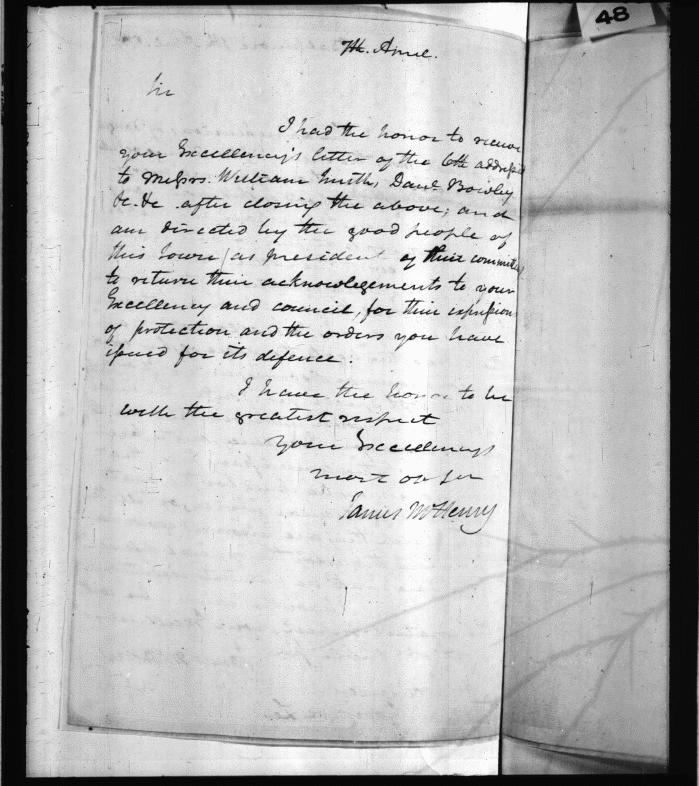 48
7th. April.
Sir
I had the honor to receive
your Excellency's letter of the 6th addressed
to Messrs. William Smith, Danl. Bowley
&c. &c. after closing the above; and
am directed by the good people of
this town (as president of their committee)
to return their acknowlegements to your
Excellency and council, for their expression
of protection and the orders you have
issued for its defence.
I have the honor to be
with the greatest respect
your Excellencys
most ob Ser
James McHenry